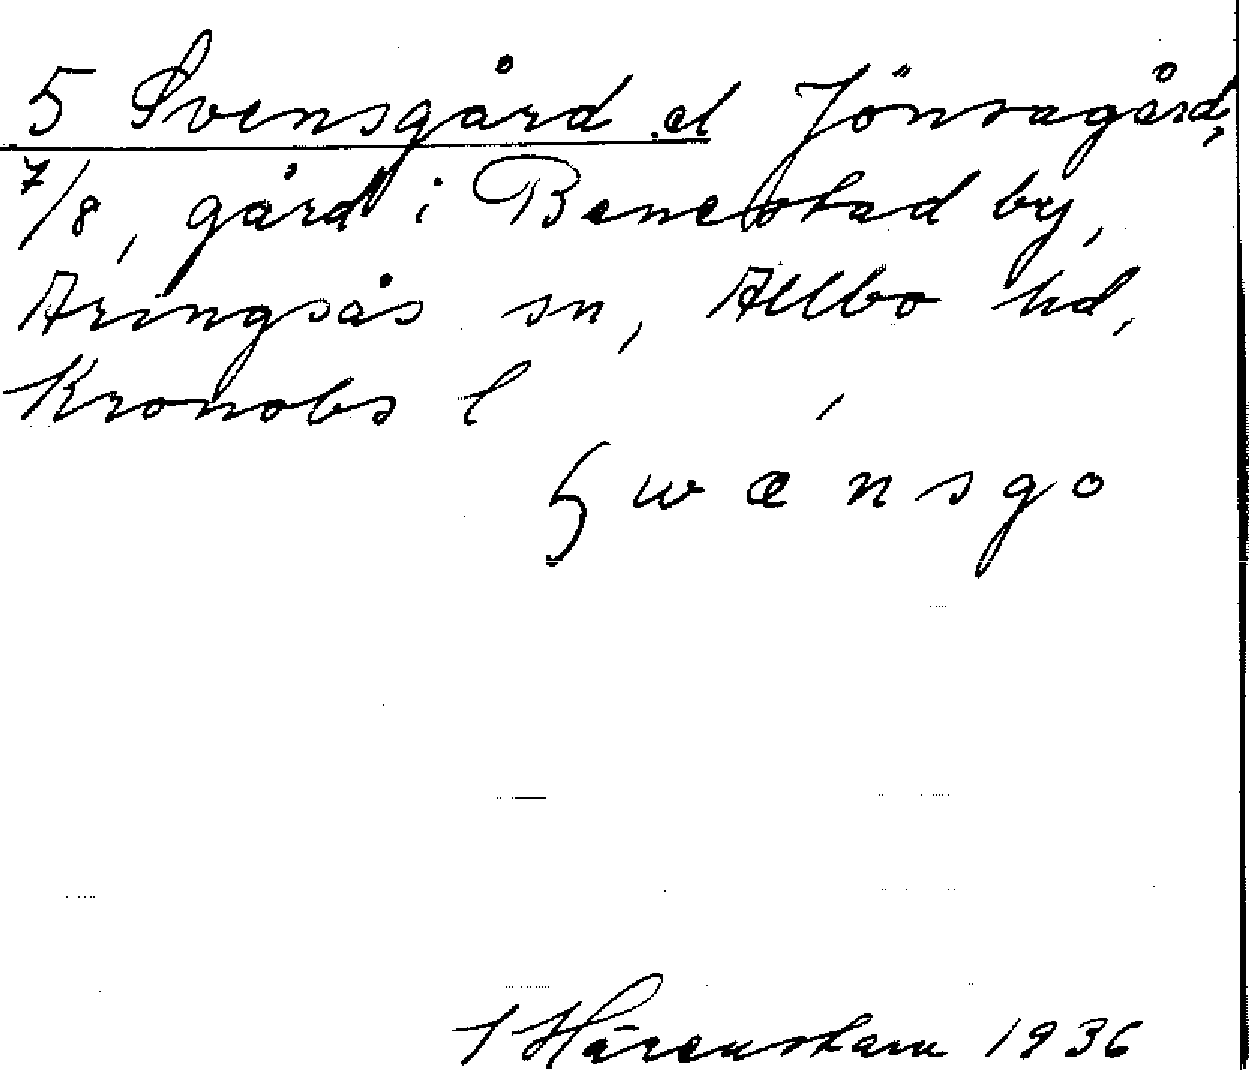 5 Svensgård el Jönsagård,
7/8, gård i Benestad by,
Aringsås sn, Allbo hd,
Kronobs l
Swænsgo
1936